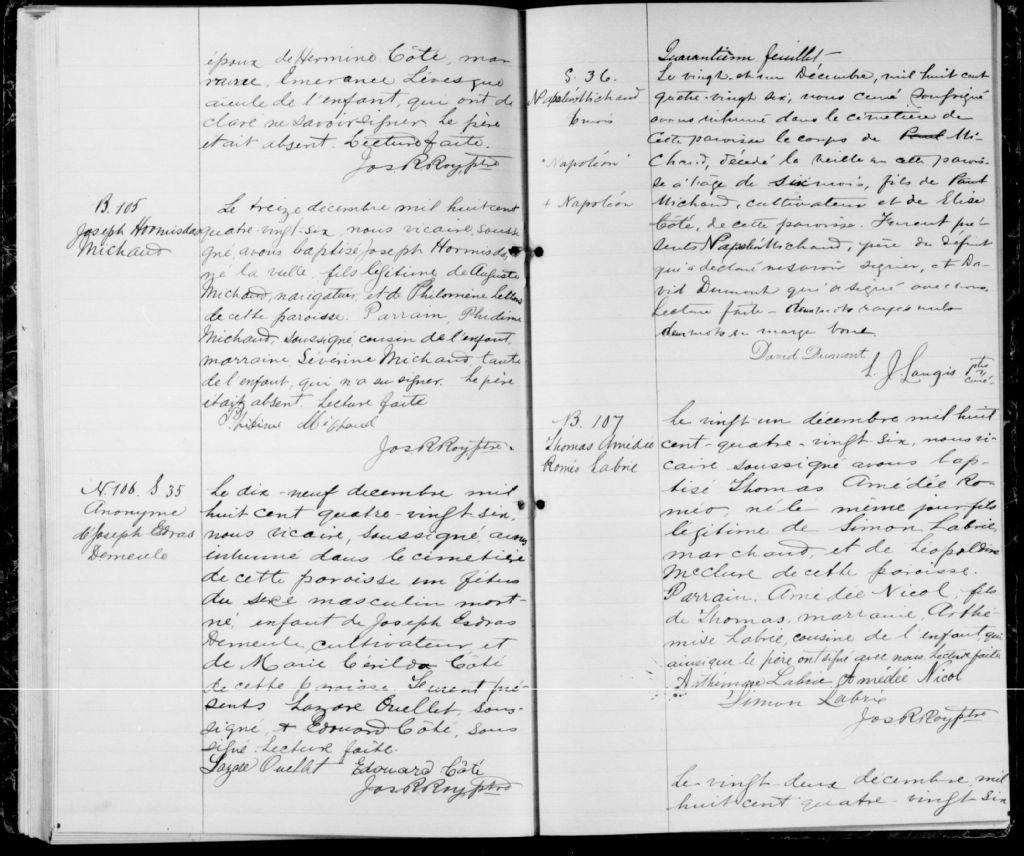 époux de Hermine Côté, mar
raine Emerance Lévesque
aieule de l'enfant, qui ont dé
claré ne savoir signer. Le père
était absent. Lecture faite.
Jos R Roy, ptre
B. 105
Joseph Hormisdas
Michaud
Le treize décembre mil huit cent
quatre-vingt-six, nous vicaire, soussi
gné, avons baptisé Joseph Hormisdas,
né la veille, fils légitime de Auguste
Michaud, navigateur, et de Philomène
de cette paroisse. Parrain, Phidime
Michaud, soussigné, cousin de l'enfant,
marraine, Séverine Michaud, tante
de l'enfant, qui n'a su signer. Le père
était absent. Lecture faite
Phidime Michaud
Jos R Roy ptre.
N. 106. S 35
Anonyme
Joseph Esdras
Demeule
Le dix-neuf decembre mil
huit cent quatre-vingt six,
nous vicaire, soussigné, avons
inhumé dans le cimetière
de cette paroisse un fétus
du sexe masculin mort-
né, enfant de Joseph Esdras
Demeule, cultivateur, et
de Marie Cérilda Côté
de cette paroisse. Furent pré-
sents Lazare Ouellet, sous-
signé, & Edouard Côté, sous
signé. Lecture faite.
Lazare Ouellet Edouard Côté
Jos R Roy ptre
Quarantième feuillet
S. 36.
Napoléon Michaud
6 mois
"Napoléon"
+ Napoléon
Le vingt et un Décembre, mil huit cent
quatre-vingt six, nous curé soussigné
avons inhumé dans le cimetière de
cette paroisse le corps de Paul Mi-
chaud, décédé la veille en cette parois-
se à l'âge de six mois, fils de Paul
Michaud, cultivateur et de Elise
Côté, de cette paroisse. Furent pré-
sents Napoléon Michaud, père du défunt
qui a déclaré ne savoir signer, et Da-
vid Dumont qui a signé avec nous.
Lecture faite - deux mots rayés nuls
deux mots en marge bons
David Dumont
L. J. Langis ptre curé.
B. 107
Thomas Amédée
Roméo Labrie
Le vingt-un décembre mil huit
cent-quatre-vingt six, nous vi-
caire soussigné avons bap-
tisé Thomas Amédée Ro-
méo, né le même jour, fils
légitime de Simon Labrie,
marchand, et de Léopoldine
McClure de cette paroisse.
Parrain, Amédée Nicol, fils
de Thomas, marraine, Arthé-
mise Labrie, cousine de l'enfant, qui
ainsi que le père ont signé avec nous. Lecture faite
Arthémise Labrie Amédée Nicol
Simon Labrie
Jos R Roy ptre
Le vingt-deux décembre mil
huit cent quatre-vingt six